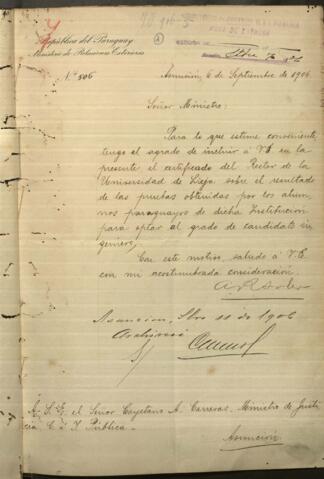 República del Paraguay
Ministerio de Relaciones Exteriores
N.º 506
Asunción, 6 de Septiembre de 1906.
Señor Ministro:
Para lo que estime conveniente,
tengo el agrado de incluir á V.E. en la
presente el certificado del Rector de la
Universidad de Lieja sobre el resultado
de las pruebas obtenidas por los alum-
nos paraguayos de dicha Institución
para optar al grado de candidato in-
geniero.
Con este motivo, saludo á V.E.
con mi acostumbrada consideración.
Asunción, 11 de 1906
Archívese
A S.E. el Señor Cayetano A. Carreras, Ministro de Justi-
cia C. é I. Pública.-
Asunción